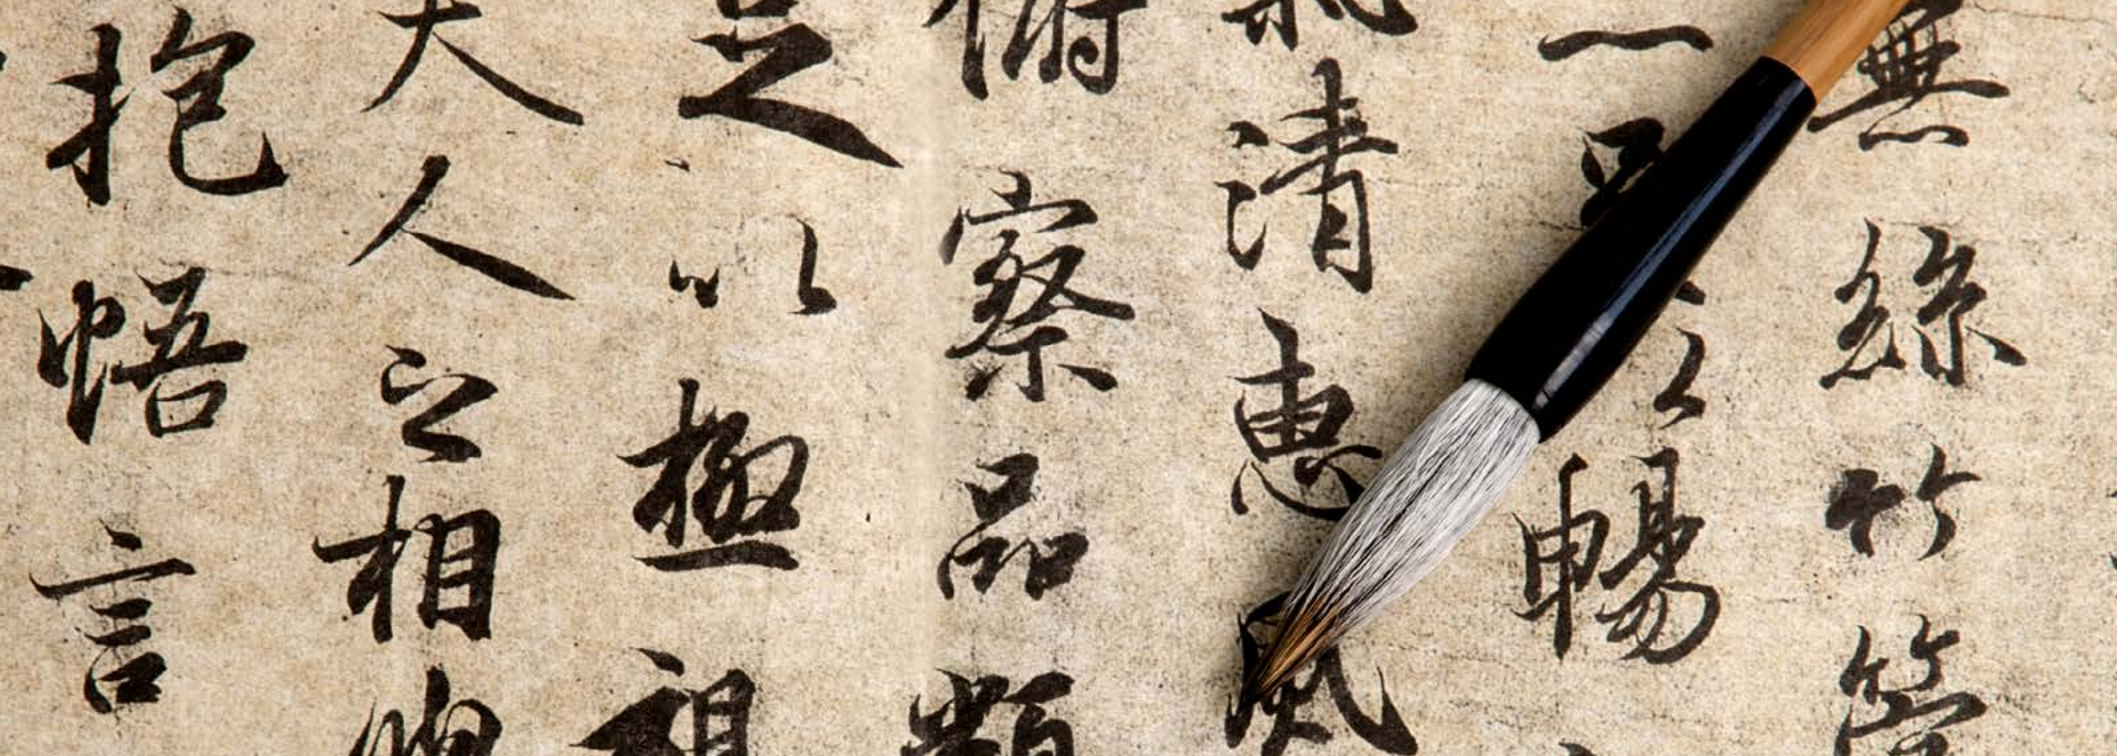 無絲竹管
一足以暢
氣清惠風
俯察品類
足以極視
夫人之相與
抱悟言